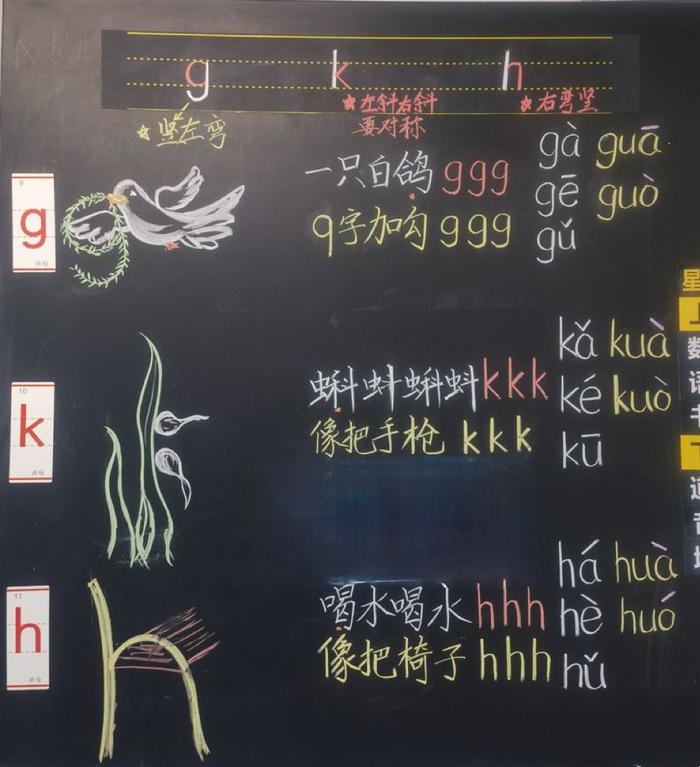 g k h
★竖左弯
★左斜右斜
要对称
★右弯竖
9
g
声母
一只白鸽 ggg
9字加勾 ggg
gà guā
gē guò
gǔ
10
k
声母
蝌蚪蝌蚪kkk
像把手枪 kkk
kǎ kuà
ké kuò
kū
11
h
声母
喝水喝水hhh
像把椅子hhh
há huà
hè huó
hǔ